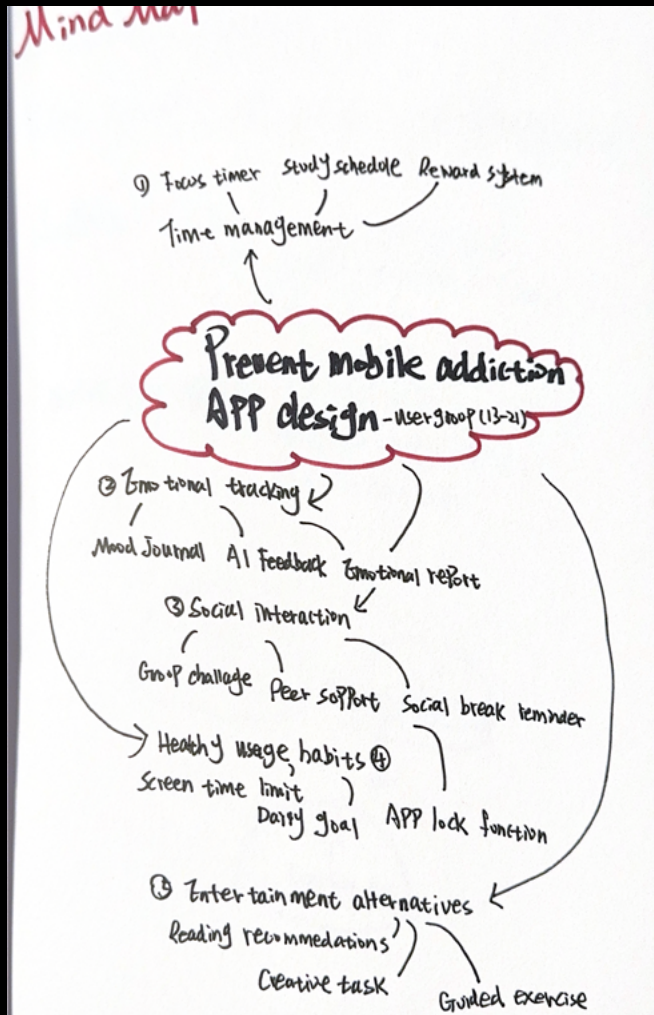 Mind Map
① Focus timer Study schedule Reward system
Time management
Prevent mobile addiction
APP design - user group (13-21)
② Emotional tracking
Mood Journal AI Feedback Emotional report
③ Social interaction
Group challage Peer support Social break reminder
Healthy usage habits ④
Screen time limit
Daily goal APP lock function
⑤ Entertainment alternatives
Reading recommedations
Creative task
Guided exercise